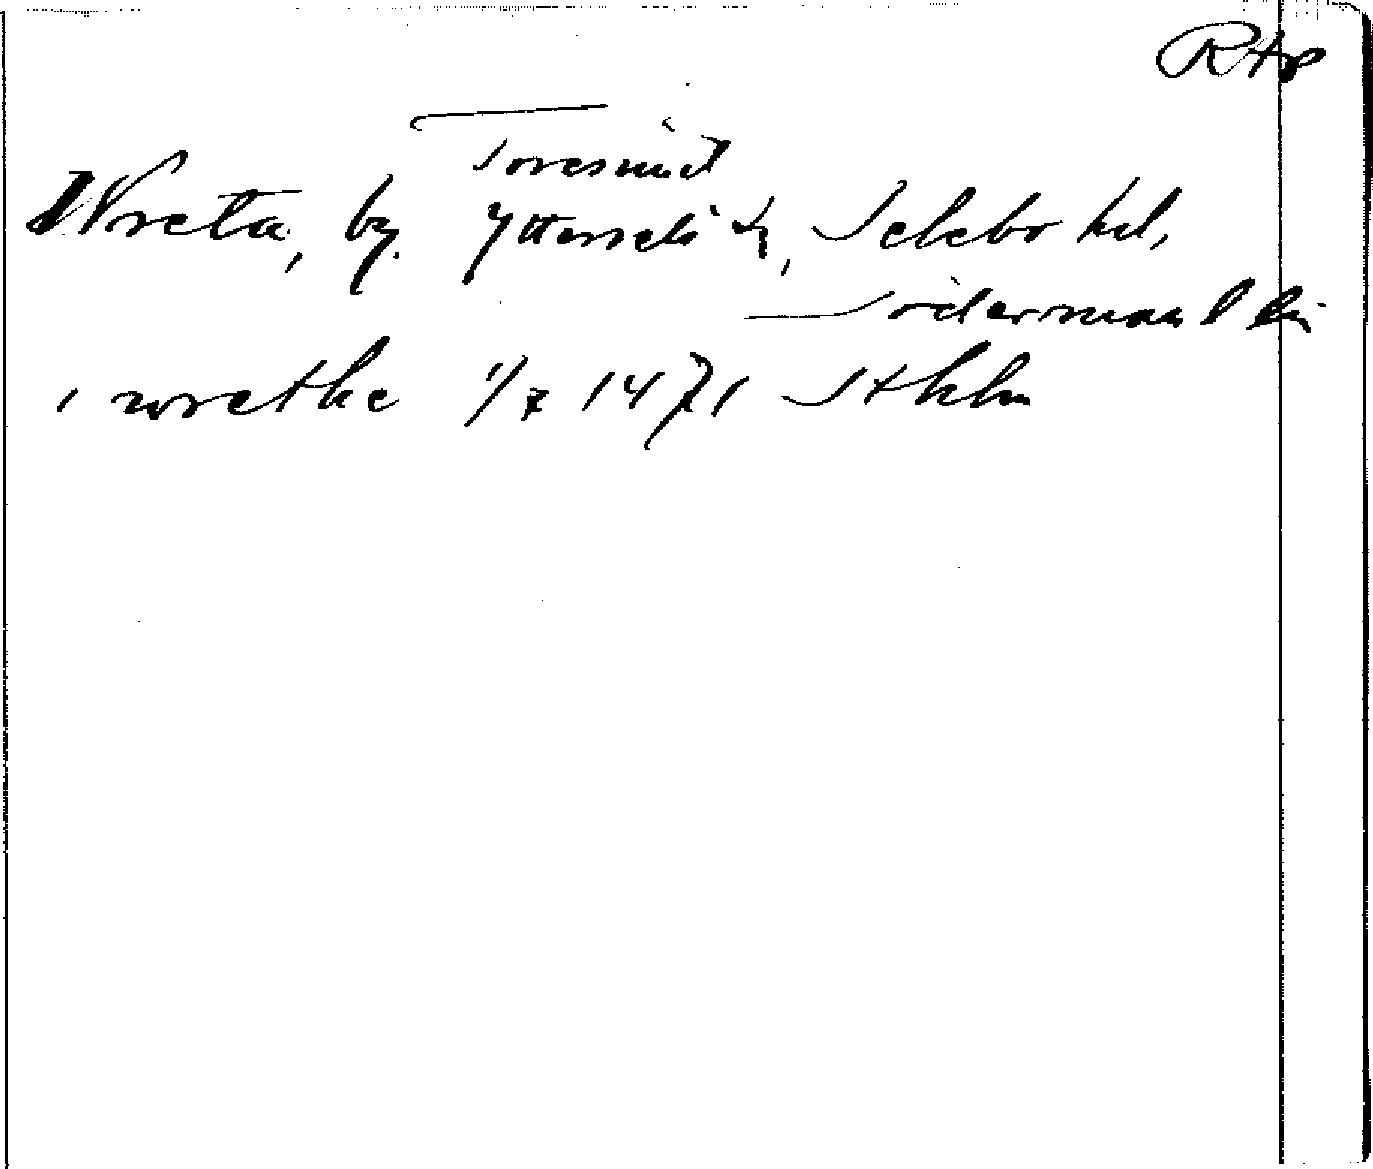 Rtp
Toresund
Wreta, by. Ytterselö sn, Selebo hd,
Södermanl län
i wrethe 1/7 1471 Sthlm